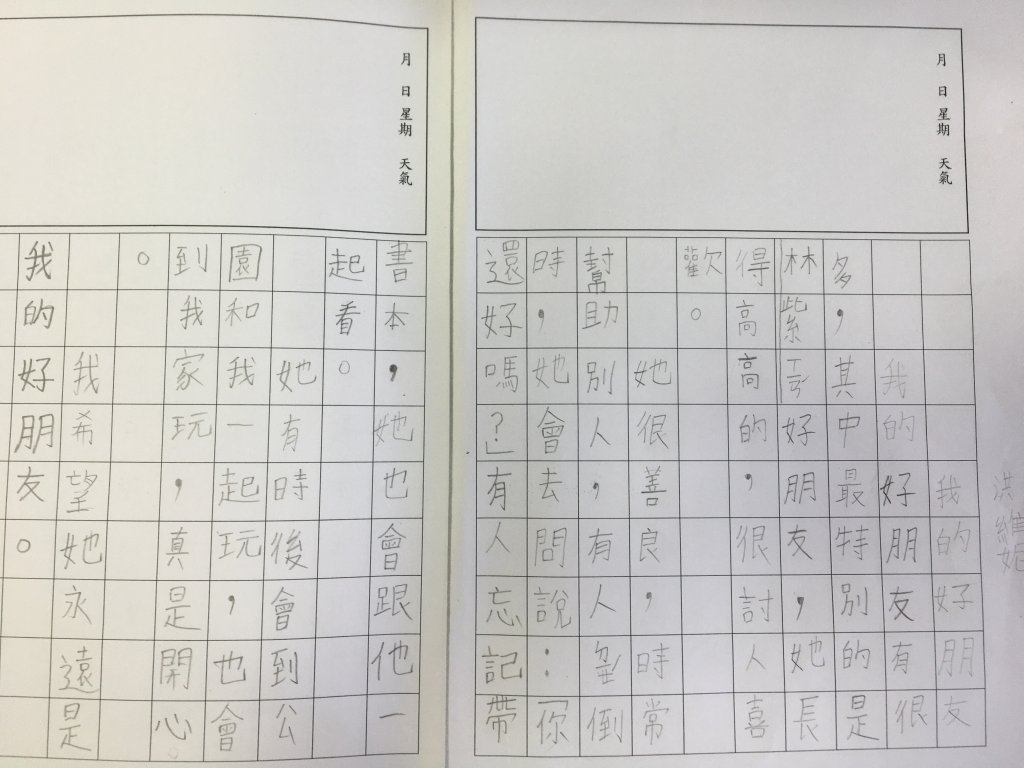 月 日 星期 天氣
洪維妮
我的好朋友
我的好朋友有很
多,其中最特別的是
林紫云好朋友,她長
得高高的,很討人喜
歡。
她很善良,時常
幫助別人,有人倒
時,她會去問說:「你
還好嗎?」有人忘記帶
月 日 星期 天氣
書本,她也會跟他一
起看。
她有時後會到公
園和我一起玩,也會
到我家玩,真是開心
。
我希望她永遠是
我的好朋友。